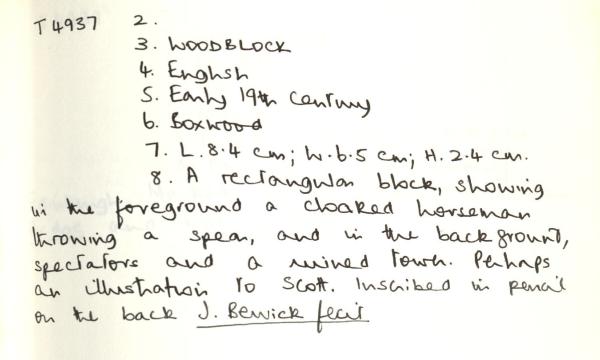 T 4937 2.
3. WOODBLOCK
4. English
5. Early 19th Century
6. Boxwood
7. L. 8.4 cm; W. 6.5 cm; H. 2.4 cm.
8. A rectangular block, showing
in the foreground a cloaked horseman
throwing a spear, and in the background,
spectators and a ruined town. Perhaps
an illustration to Scott. Inscribed in pencil
on the back J. Bewick fecit